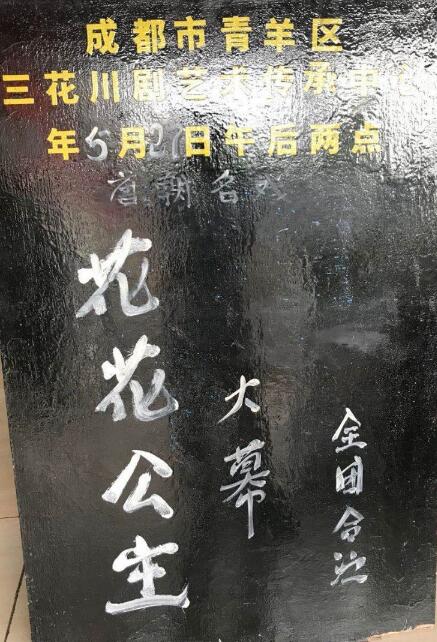 成都市青羊区
三花川剧艺术传承中心
年5月27日午后两点
唐朝名戏
花花公主
大幕
全团合演